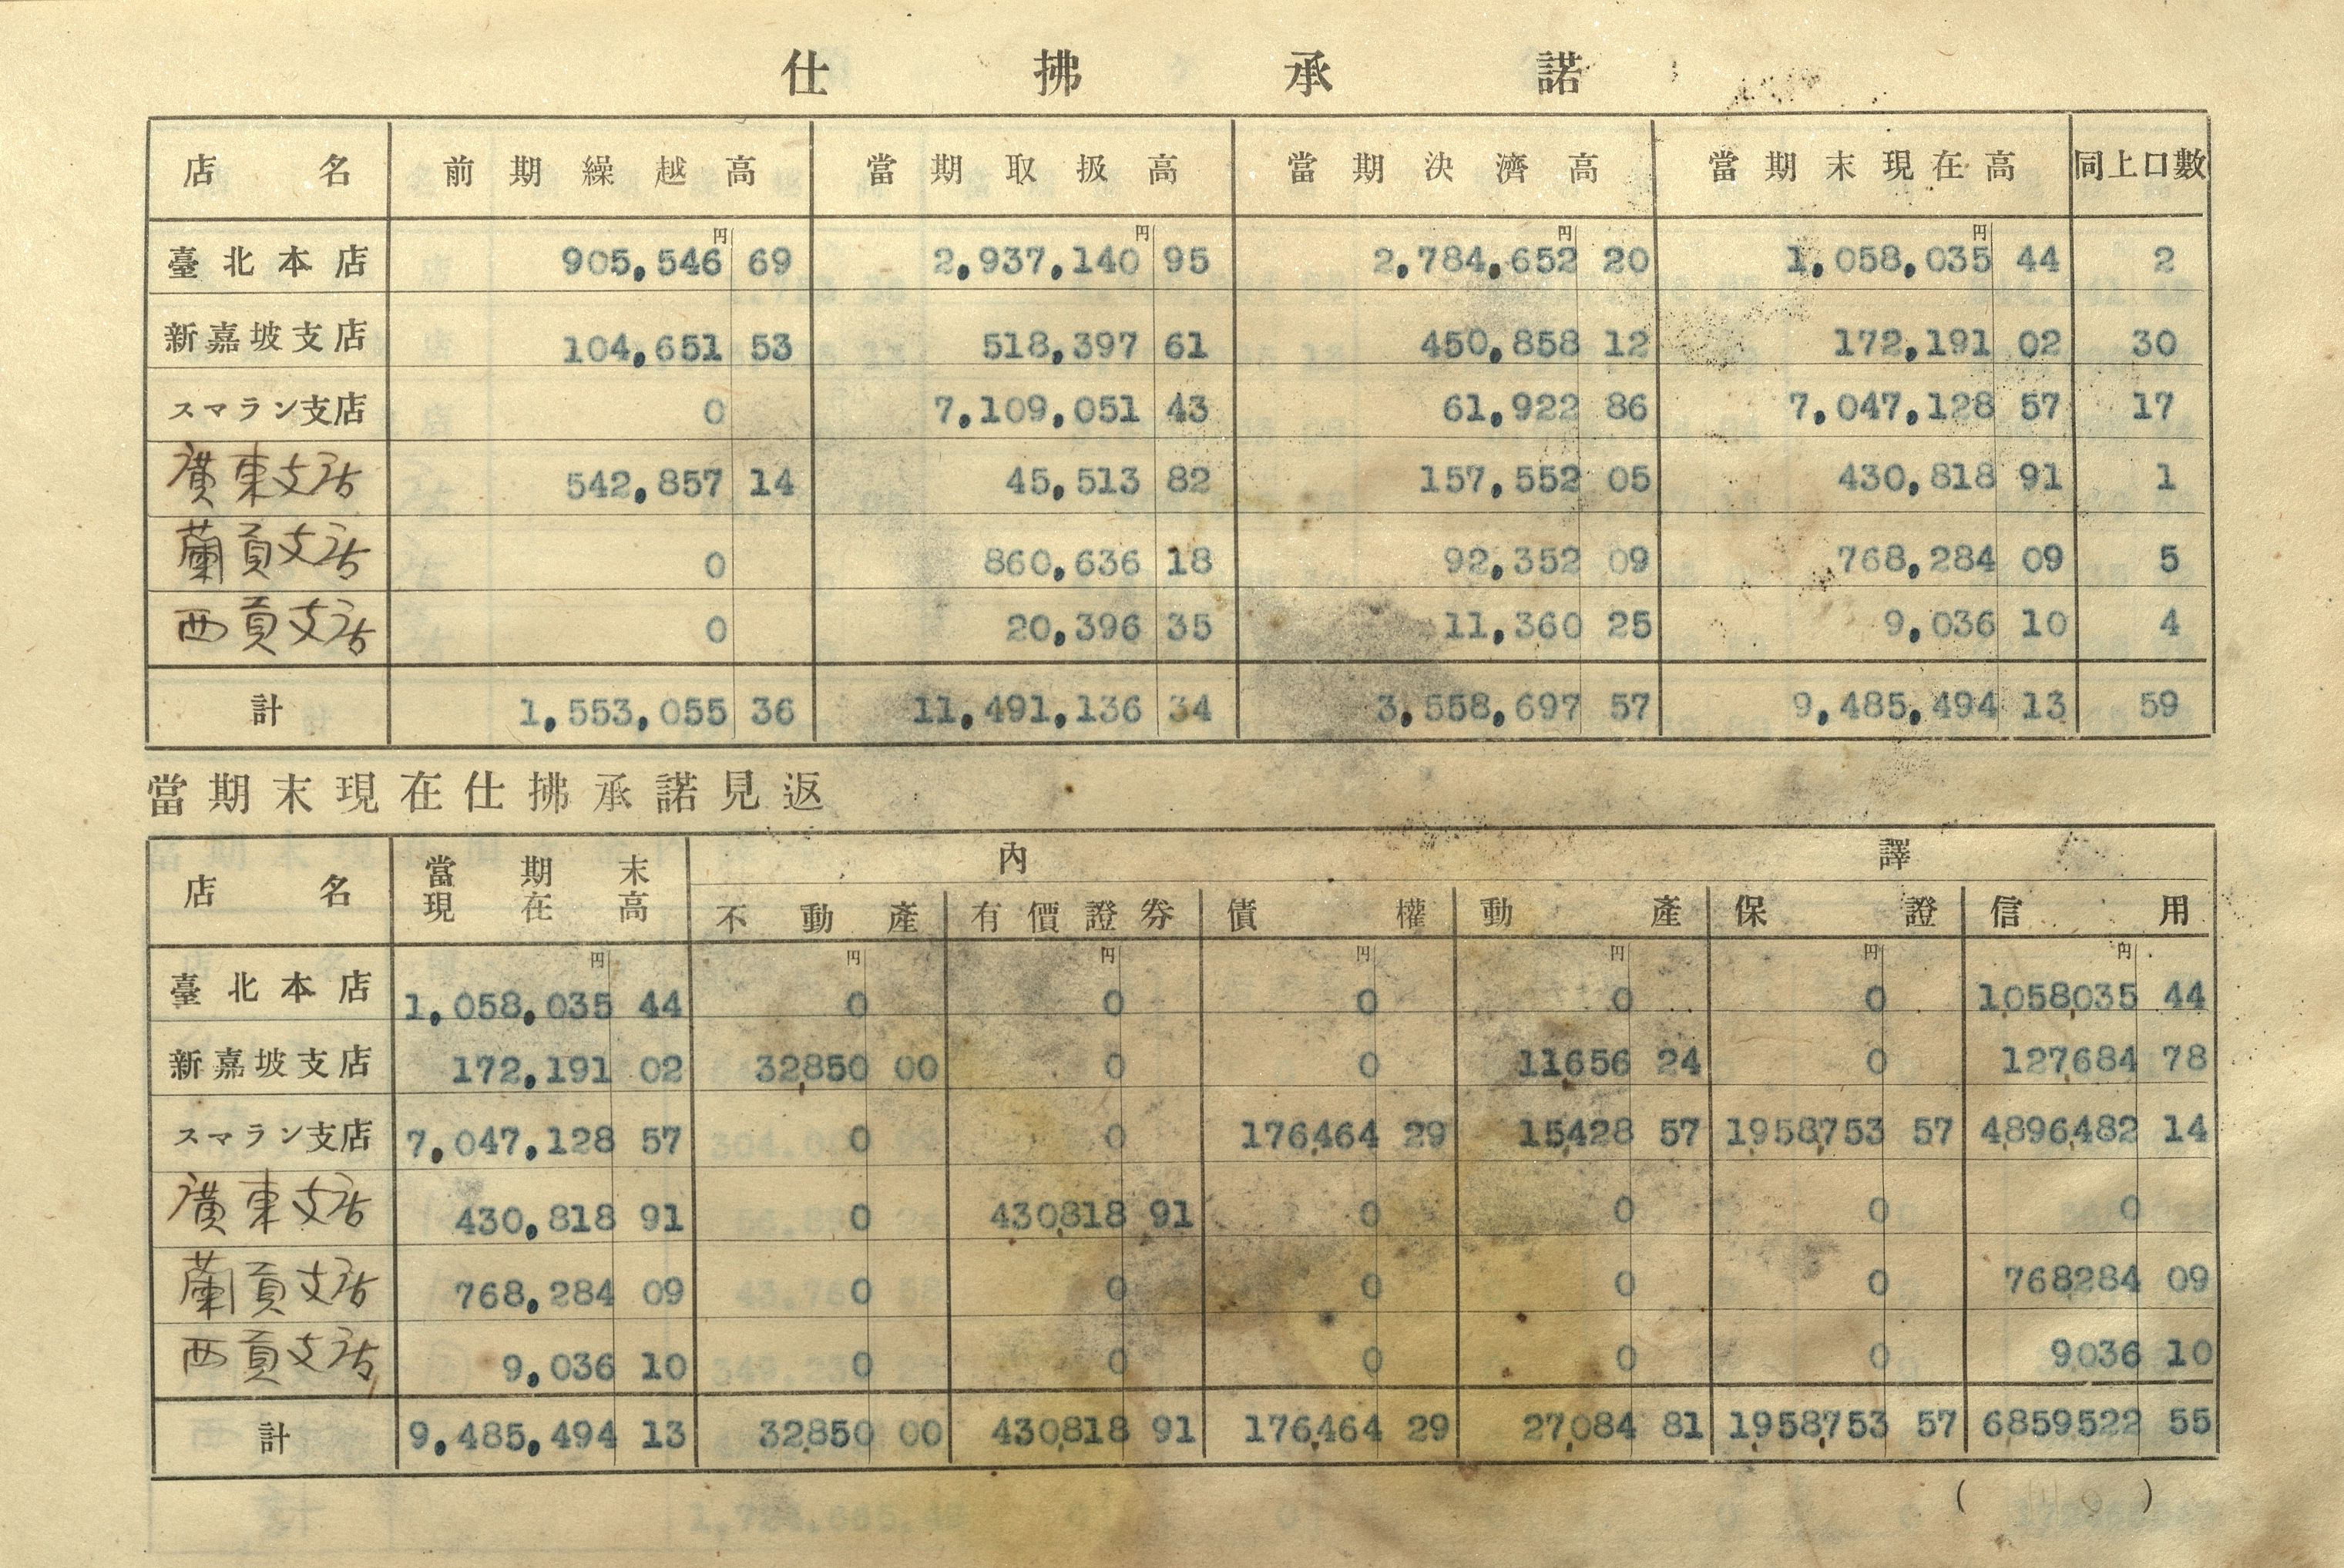 仕拂承諾
店名 前期繰越高 當期取扱高 當期決濟高 當期末現在高 同上口數
円 円 円 円
臺北本店 905,546 69 2,937,140 95 2,784,652 20 1,058,035 44 2
新嘉坡支店 104,651 53 518,397 61 450,858 12 172,191 02 30
スマラン支店 0 7,109,051 43 61,922 86 7,047,128 57 17
廣東支店 542,857 14 45,513 82 157,552 05 430,818 91 1
蘭貢支店 0 860,636 18 92,352 09 768,284 09 5
西貢支店 0 20,396 35 11,360 25 9,036 10 4
計 1,553,055 36 11,491,136 34 3,558,697 57 9,485,494 13 59
當期末現在仕拂承諾見返
店名 當期末現在高 內譯
不動產 有價證券 債權 動產 保證 信用
円 円 円 円 円 円 円
臺北本店 1,058,035 44 0 0 0 0 0 1,058,035 44
新嘉坡支店 172,191 02 32,850 00 0 0 11,656 24 0 127,684 78
スマラン支店 7,047,128 57 0 0 176,464 29 15,428 57 1,958,753 57 4,896,482 14
廣東支店 430,818 91 0 430,818 91 0 0 0 0
蘭貢支店 768,284 09 0 0 0 0 0 768284 09
西貢支店 9,036 10 0 0 0 0 0 9,036 10
計 9,485,494 13 32,850 00 430,818 91 176,464 29 27,084 81 1,958,753 57 6,859,522 55